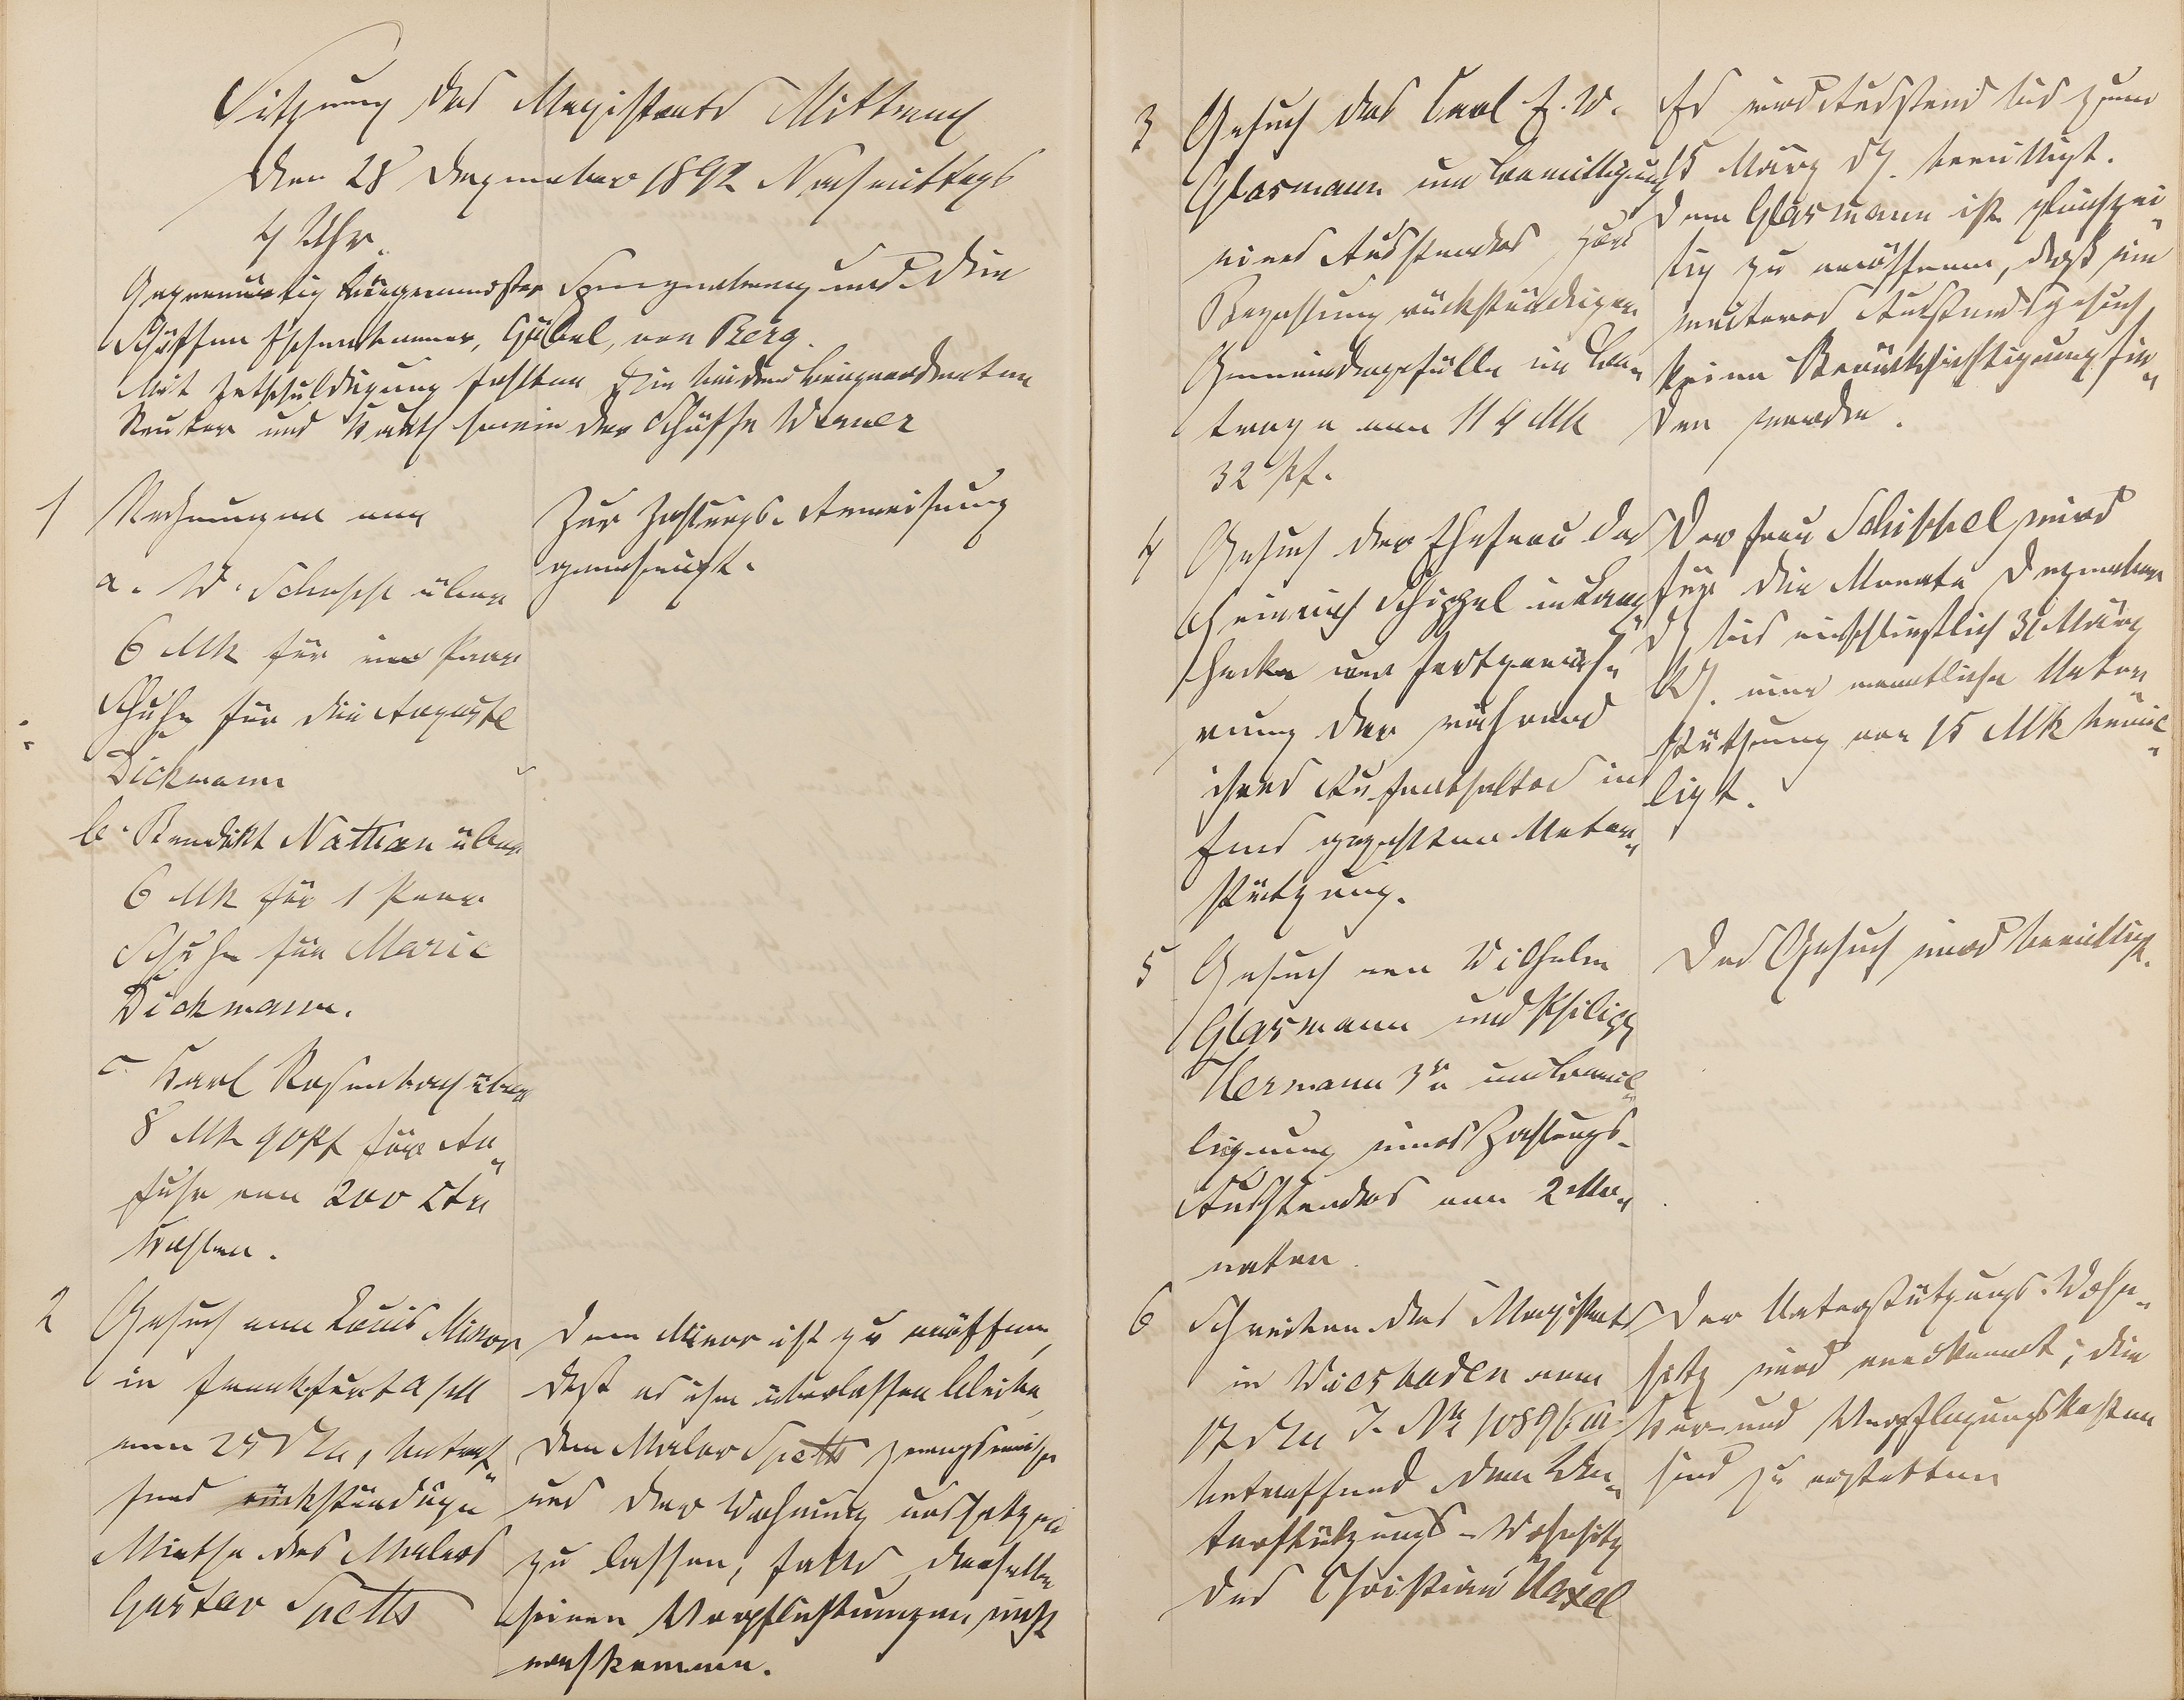 Sitzung des Magistrats Mittwoch
den 28 Dezember 1892 Nachmittags
4 Uhr.
Gegenwärtig Bürgermeister und die
Schöffen Eschenbrenner, Göbel, von Berg.
Mit Entschuldigung fehlten die beiden Beigeordneten
und sowie der Schöffe Werner
1
Rechnungen von
a. W. Schupp über
6 Mk für ein Paar
Schuhe für die Auguste
Dickmann
b. Benedikt Nathan über
6 Mk für 1 Paar
Schuhe für Marie
Dickmann.
c Karl Rosenbach über
8 Mk 90 Pf für An„
fuhr von 200 Ctr
Kohlen.
Zur Zahlungs-Anweisung
genehmigt.
2
Gesuch von Louis Minor
in Frankfurt a/M
vom 25 d. M., betref„
fend rückständige
Miethe des Malers
Gustav Spetts
Dem Minor ist zu eröffnen,
daß es ihm überlassen bleibe,
den Maler Spetts zwangsweise
aus der Wohnung aussetzen
zu lassen, falls derselbe
seinen Verpflichtungen nicht
nachkomme.
3
Gesuch des Carl F. W.
Glasmann um Bewilligung
eines Ausstandes zur
Bezahlung rückständiger
Gemeindegefälle im Be„
trage von 114 Mk
32 Pf.
Es wird Ausstand bis zum
15 März k. J. bewilligt.
Dem Glasmann ist gleichzei„
tig zu eröffnen, daß ein
weiteres Ausstandsgesuch
keine Berücksichtigung fin„
den werde.
4
Gesuch der Ehefrau des
Heinrich Schippel in Lang„
hecke um Fortgewäh„
rung der während
ihres Aufenthaltes in
Ems gezahlten Unter„
stützung.
Der Frau Schippel wird
für die Monate Dezember
d J bis einschließlich 31 März
k J. eine monatliche Unter„
stützung von 15 Mk bewil„
ligt.
5
Gesuch von Wilhelm
Glasmann und Philipp
Hermann 3r um Bewil„
ligung eines Zahlungs-
Ausstandes von 2 Mo„
naten.
Das Gesuch wird bewilligt.
6
Schreiben des Magistrats
in Wiesbaden vom
17 d. M. J. Nr
betreffend den Un„
terstützungs-Wohnsitz
des Christian
Der Unterstützungs-Wohn„
sitz wird anerkannt; die
Kur- und Verpflegungskosten
sind zu erstatten